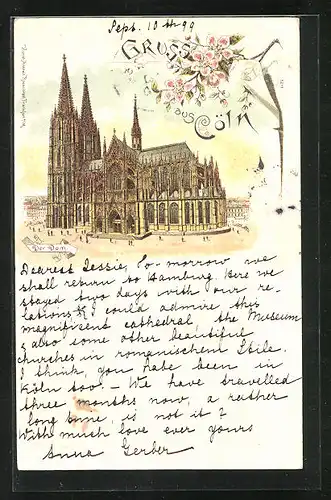 Sept. 10th 99
Gruss
aus Cöln
Der Dom.
Dearest Jessie, To-morrow we
shall return to Hamburg. Here we
stayed two days with our re-
lations & I could admire this
magnificent cathedral the Museum
& also some other beautiful
churches in romanischem Stile.
I think, you have been in
Köln too. - We have travelled
three months now, a rather
long time is not it?
With much love ever yours
Anna Gerber